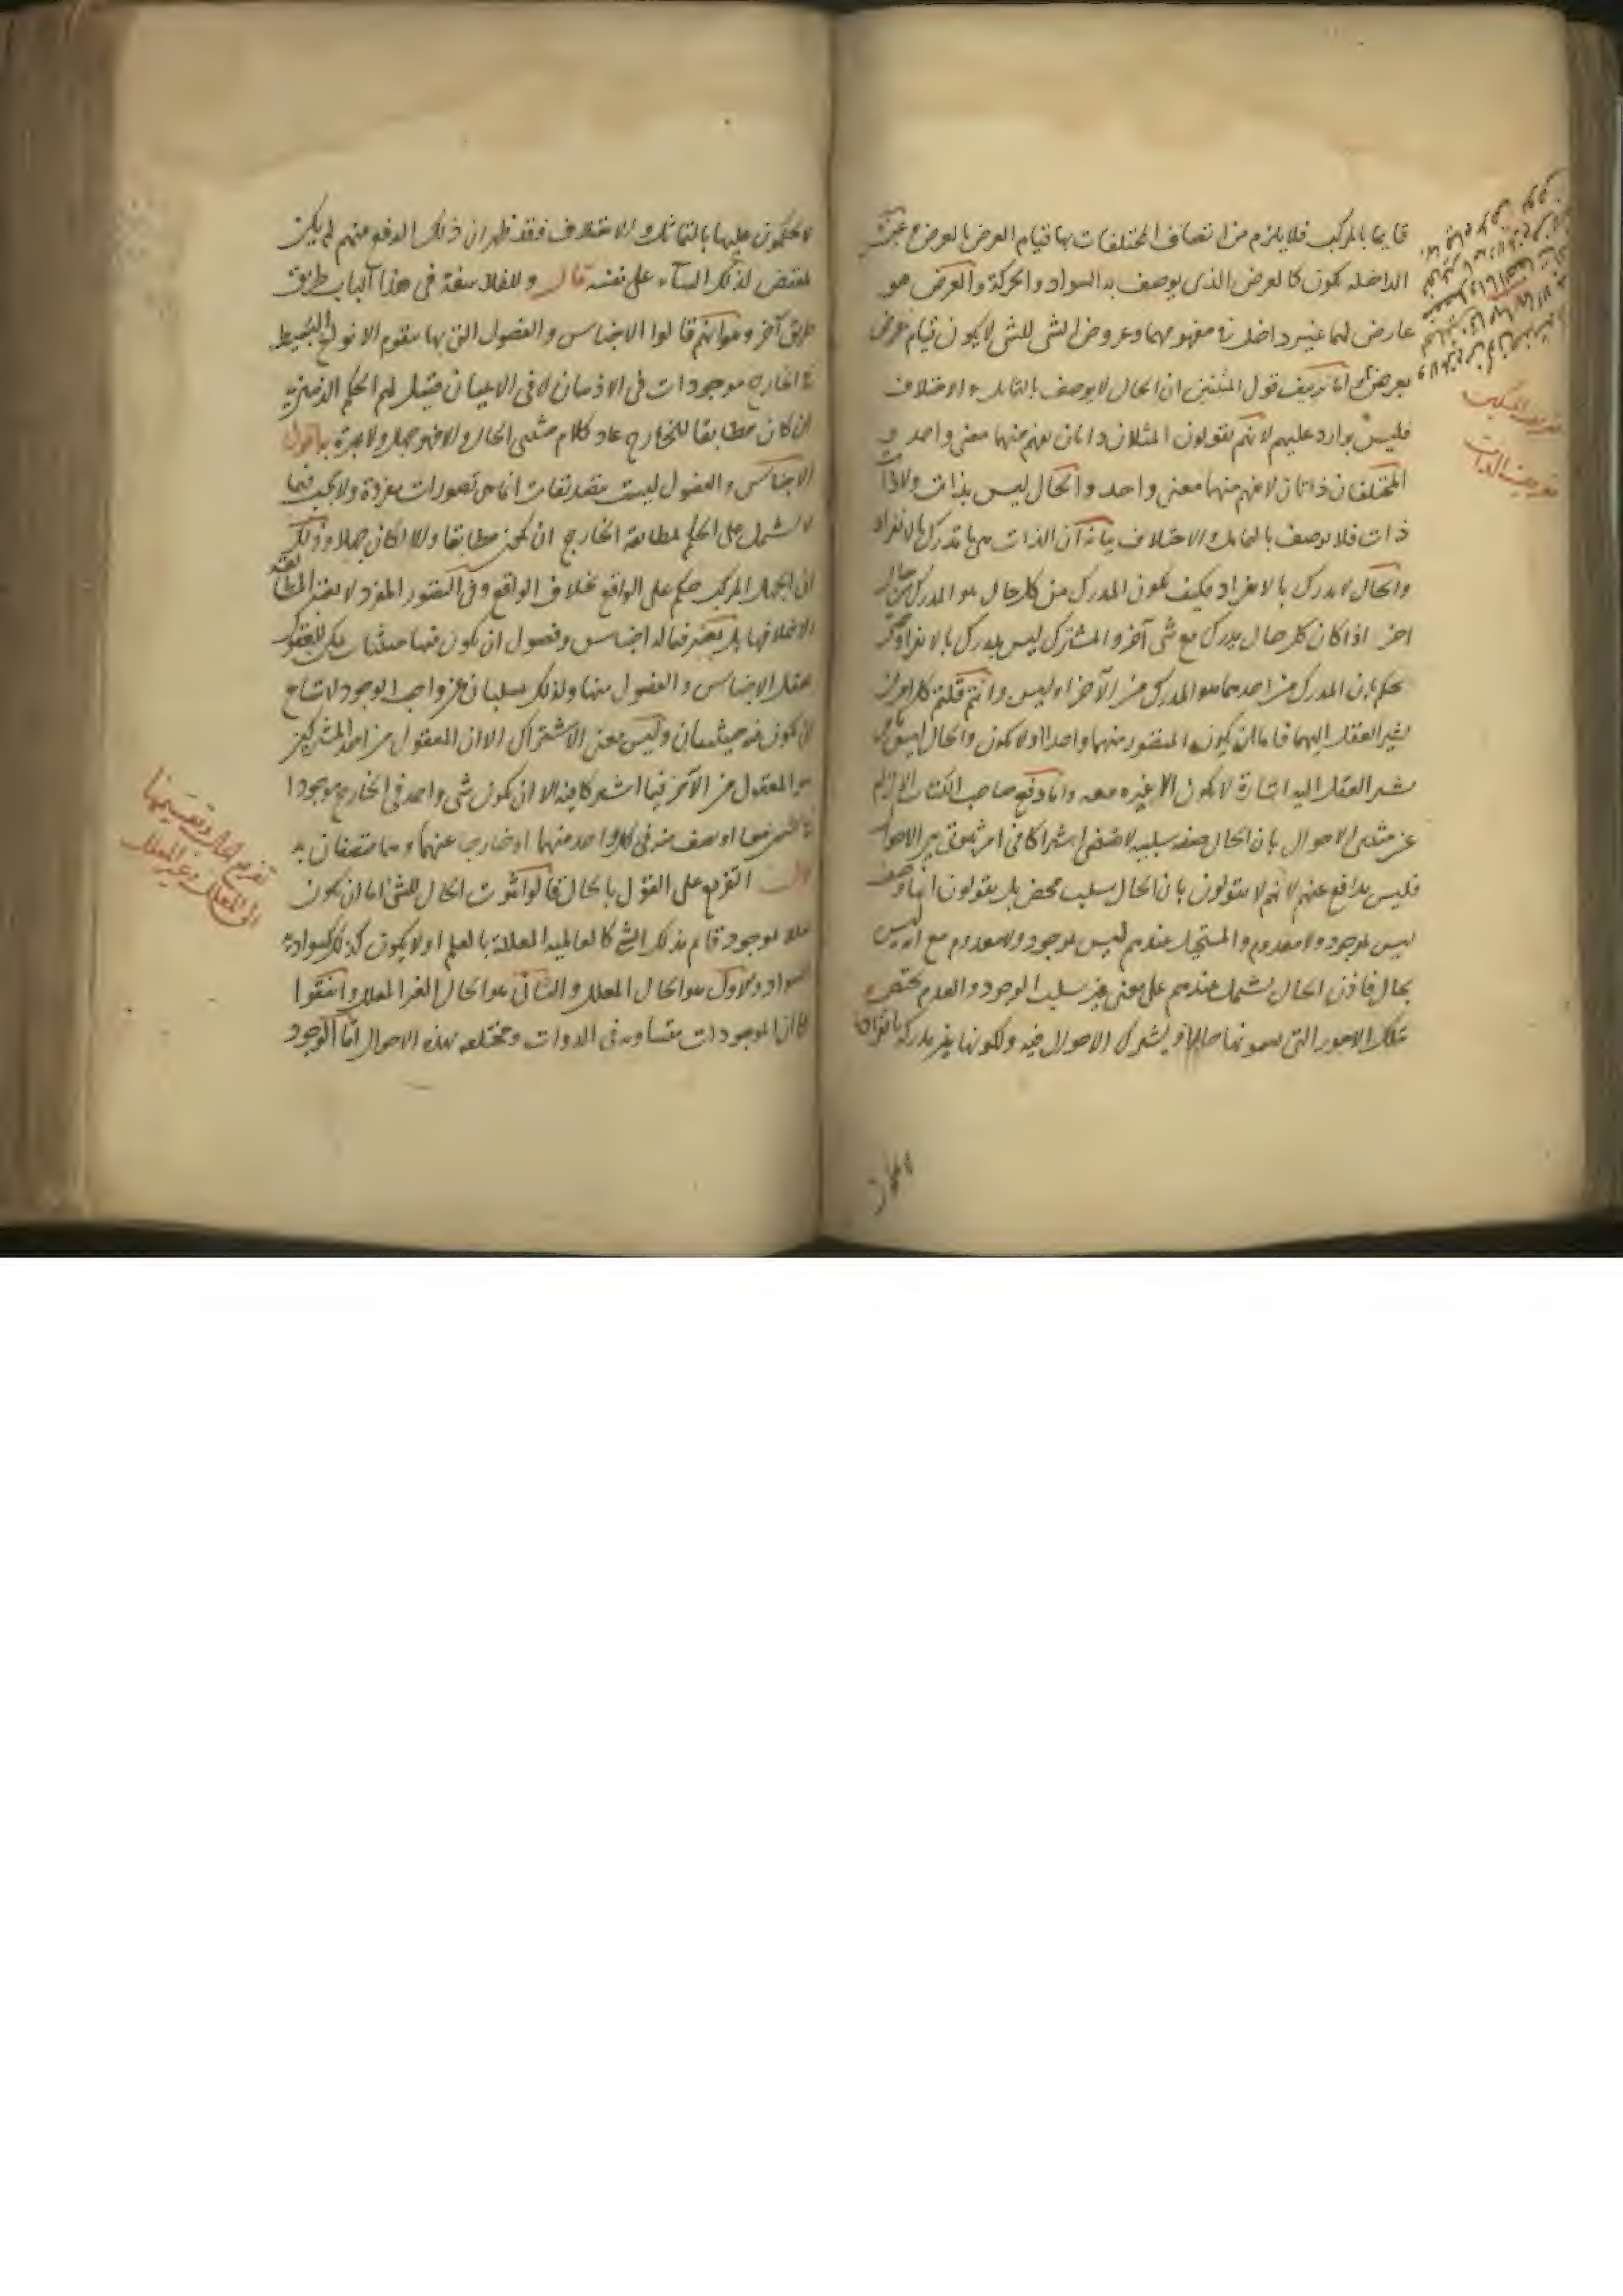 قايما بالمركب فلا يلزم من اتصاف المختلفات بها قيام العرض بالعرض وغير
الداخلة يكون كالعرض الذى يوصف به السواد والحركة والعرض هو
عارض لهما غير داخل فى مفهومهما وعروض الشى للشى لا يكون قيام عرض
بعرض اما تزييف قول المثبتين ان الحال لا يوصف بالتماثل والاختلاف
فليس بوارد عليهم لانهم يقولون المثلان ذاتان يفهم منهما معنى واحد و
المختلفان ذاتان لا يفهم منهما معنى واحد والحال ليس بذات ولا ذا
ذات فلا يوصف بالتماثل والاختلاف بيانه ان الذات هى ما تدرك بالانفراد
والحال لا يدرك بالانفراد فكيف يكون المدرك من كل حال هو المدرك من حال
اخر اذا كان كل حال يدرك مع شى آخر والمشترك ليس يدرك بالانفراد
يحكم بان المدرك من احدهما هو المدرك من الآخر او ليس وانتم قلتم كل امرين
يشير العقل اليهما فاما ان يكون المتصور منهما واحدا او لا يكون والحال ليس
يشير العقل اليه اشارة لا يكون الى غيره معه واما دفع صاحب الكتاب الالزام
عن مثبتى الاحوال بان الحال صفة سلبية لا تقتضى اشتراكا فى امر ثبوتى بين الاحوال
فليس بدافع عنهم لانهم لا يقولون بان الحال سلب محض بل يقولون انها وصف
ليس بموجود ولا معدوم والمستحيل عندهم ليس بموجود ولا معدوم مع انه ليس
بحال فاذن الحال يشمل عندهم على معنى غير سلب الوجود والعدم يختص
تلك الامور التى يسمونها حالا ويشترك الاحوال فيه ولكونها غير مدركة بانفرادها
تعريف الذات
لا يحكمون عليها بالتماثل والاختلاف فقد ظهر ان ذلك الدفع منهم لم يكن
على نفسه قال وللفلاسفة فى هذا الباب طريق
طريق آخر وهو انهم قالوا الاجناس والفصول التى بها يتقوم الانواع البسيطة
فى الخارج موجودات فى الاذهان لا فى الاعيان فقيل لهم الحكم الذهنى
ان كان مطابقا للخارج عاد كلام مثبتى الحال والا فهو جهل ولا عبرة به اقول
الاجناس والفصول ليست بتصديقات انما هى تصورات مفردة ولا يجب فيما
لا يشتمل على الحكم مطابقة الخارج ان يكون مطابقا والا لكان جهلا وذلك
ان الجهل المركب حكم على الواقع بخلاف الواقع وفى التصور المفرد لا يعتبر المطابقة
بل يعتبر فيما له اجناس وفصول ان يكون فيها حيثيات يمكن للعقل
تعقل الاجناس والفصول منها ولذلك يسلبان عن واجب الوجود لامتناع
ان يكون فيه حيثيتان وليس معنى الاشتراك الا ان المعقول من احد المشتركين
هو المعقول من الآخر فيما اشتركا فيه الا ان يكون شى واحد فى الخارج موجودا
او نصف منه فى كل واحد منهما او خارجا عنهما وهما متصفان به
قال التفريع على القول بالحال قالوا ثبوت الحال للشى اما ان يكون
معللا بموجود قائم بذلك الشى كالعالمية المعللة بالعلم او لا يكون كذلك كسوادية
السواد والاول هو الحال المعلل والثانى هو الحال الغير المعلل واتفقوا
على ان الموجودات متساوية فى الذوات ومختلفة بهذه الاحوال اما الوجود
تفريع الحال وتقسيمها
الى المعلل وغير المعلل